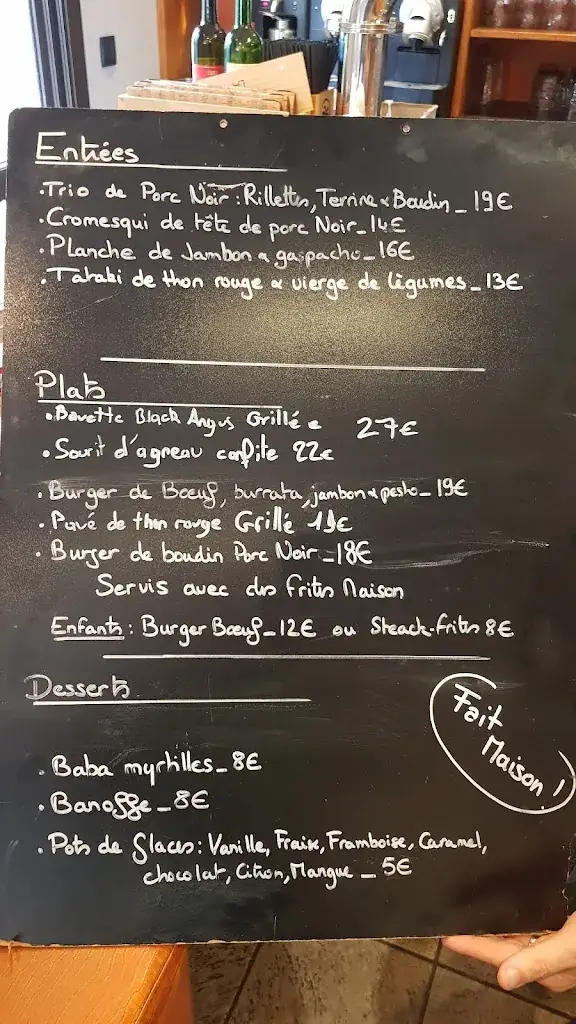 Entrées
.Trio de Porc Noir : Rillettes, Terrine & Boudin _ 19€
.Cromesqui de tête de porc Noir_ 14€
.Planche de Jambon & gaspacho_ 16€
.Tataki de thon rouge & vierge de légumes_ 13€
Plats
.Bavette Black Angus Grillée 27€
.Souri d'agneau confite 22€
.Burger de Bœuf, burrata, jambon & pesto_ 19€
.Pavé de thon rouge Grillé 19€
.Burger de boudin Porc Noir_ 18€
Servis avec des frites Maison
Enfants : Burger Bœuf_ 12€ ou Steack-frites 8€
Desserts
Fait
Maison !
.Baba myrtilles_ 8€
.Banoffee_ 8€
.Pots de Glaces : Vanille, Fraise, Framboise, Caramel,
chocolat, Citron, Mangue _ 5€